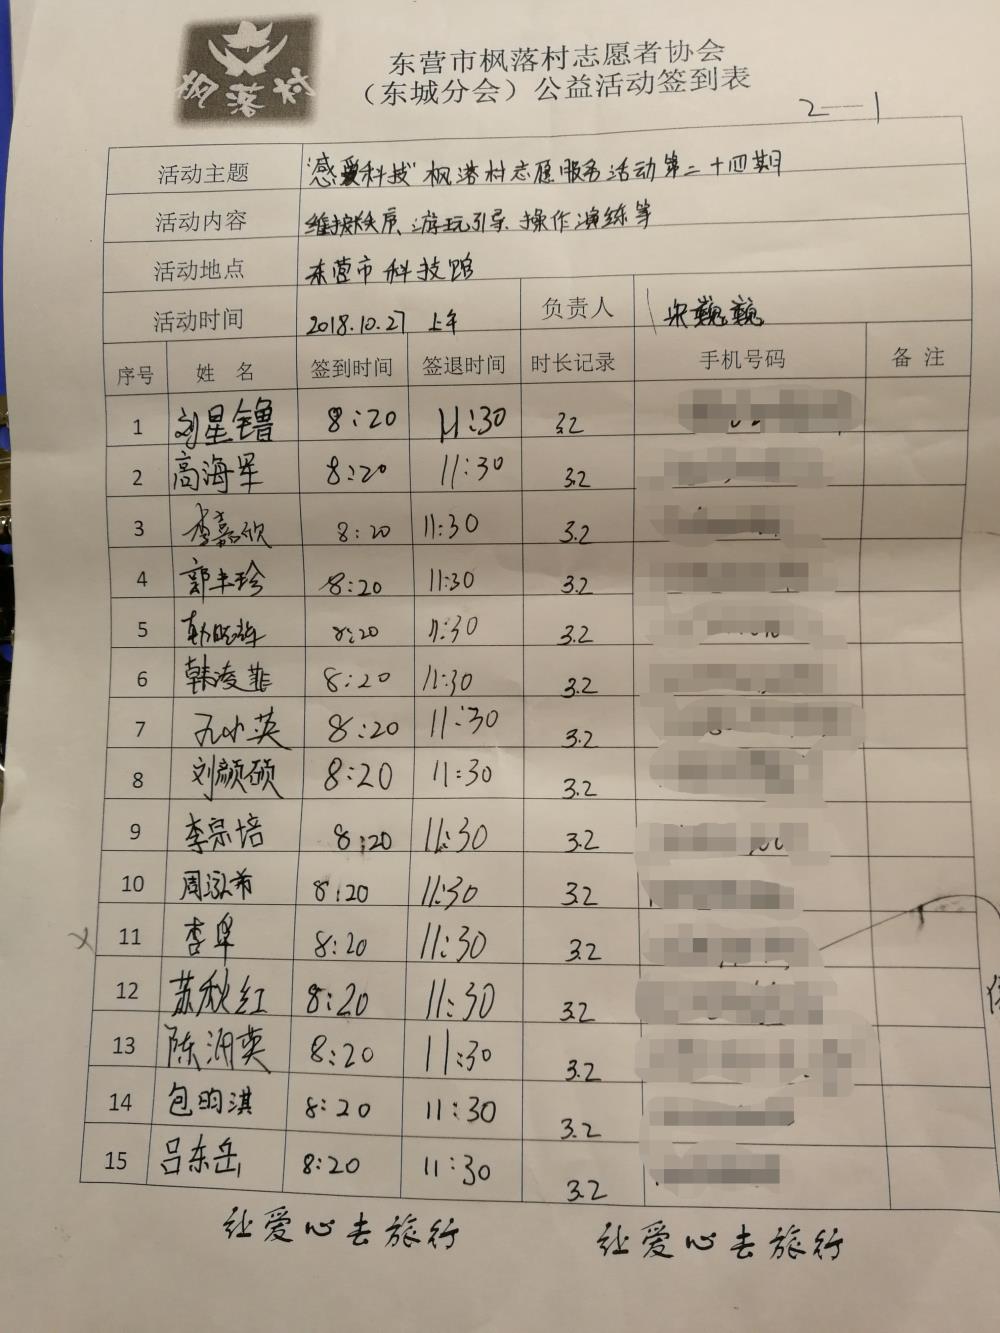 枫落村
东营市枫落村志愿者协会
（东城分会）公益活动签到表
2—1
活动主题 "感爱科技"枫落村志愿服务活动第二十四期
活动内容 维持秩序、游玩引导、操作演练等
活动地点 东营市科技馆
活动时间 2018.10.27 上午 负责人 宋巍巍
序号 姓 名 签到时间 签退时间 时长记录 手机号码 备 注
1 刘星镥 8:20 11:30 3.2
2 高海军 8:20 11:30 3.2
3 李嘉欣 8:20 11:30 3.2
4 郭丰珍 8:20 11:30 3.2
5 8:20 11:30 3.2
6 韩凌菲 8:20 11:30 3.2
7 孔小英 8:20 11:30 3.2
8 刘颜硕 8:20 11:30 3.2
9 李宗培 8:20 11:30 3.2
10 周泓希 8:20 11:30 3.2
11 8:20 11:30 3.2
12 苏秋红 8:20 11:30 3.2
13 陈湘英 8:20 11:30 3.2
14 包昀淇 8:20 11:30 3.2
15 吕东岳 8:20 11:30 3.2
让爱心去旅行 让爱心去旅行